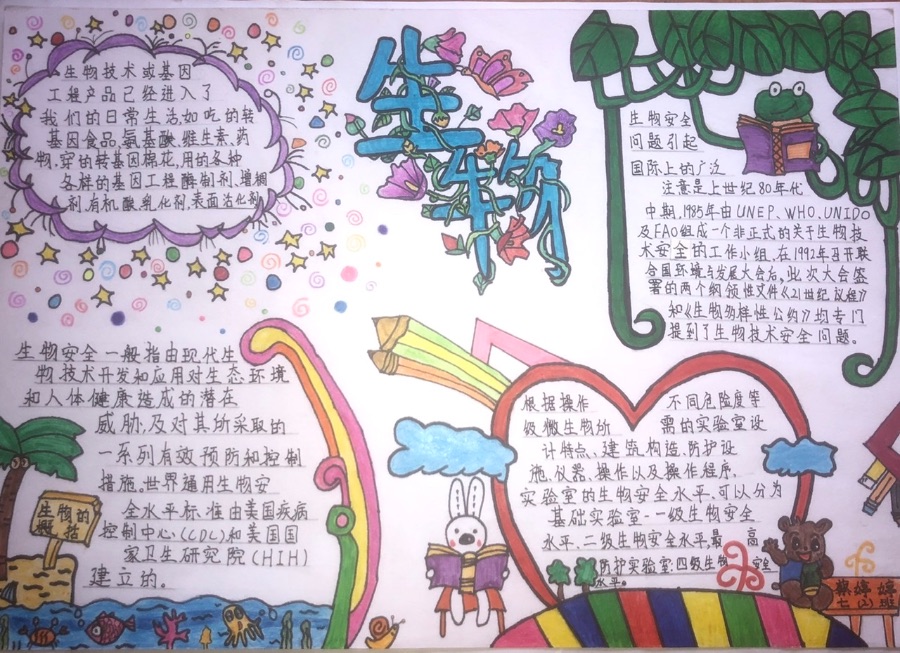 生物
生物技术或基因
工程产品已经进入了
我们的日常生活如吃的转
基因食品,氨基酸、维生素、药
物,穿的转基因棉花,用的各种
各样的基因工程酶制剂、增稠
剂,有机酸、乳化剂、表面活化剂
生物安全
问题引起
国际上的广泛
注意是上世纪80年代
中期,1985年由UNEP、WHO、UNIDO
及FAO组成一个非正式的关于生物技
术安全的工作小组、在1992年召开联
合国环境与发展大会后,此次大会签
署的两个纲领性文件《21世纪议程》
和《生物多样性公约》均专门
提到了生物技术安全问题。
生物安全一般指由现代生
物技术开发和应用对生态环境
和人体健康造成的潜在
威胁,及对其所采取的
一系列有效预防和控制
措施。世界通用生物安
全水平标准由美国疾病
控制中心(CDC)和美国国
家卫生研究院(HIH)
建立的。
生物的
概括
根据操作 不同危险度等
级微生物所 需的实验室设
计特点、建筑构造、防护设
施、仪器、操作以及操作程序、
实验室的生物安全水平、可以分为
基础实验室-一级生物安全
水平、二级生物安全水平,最 高
防护实验室:四级生物 安全
水平。
婷婷
七(2)班